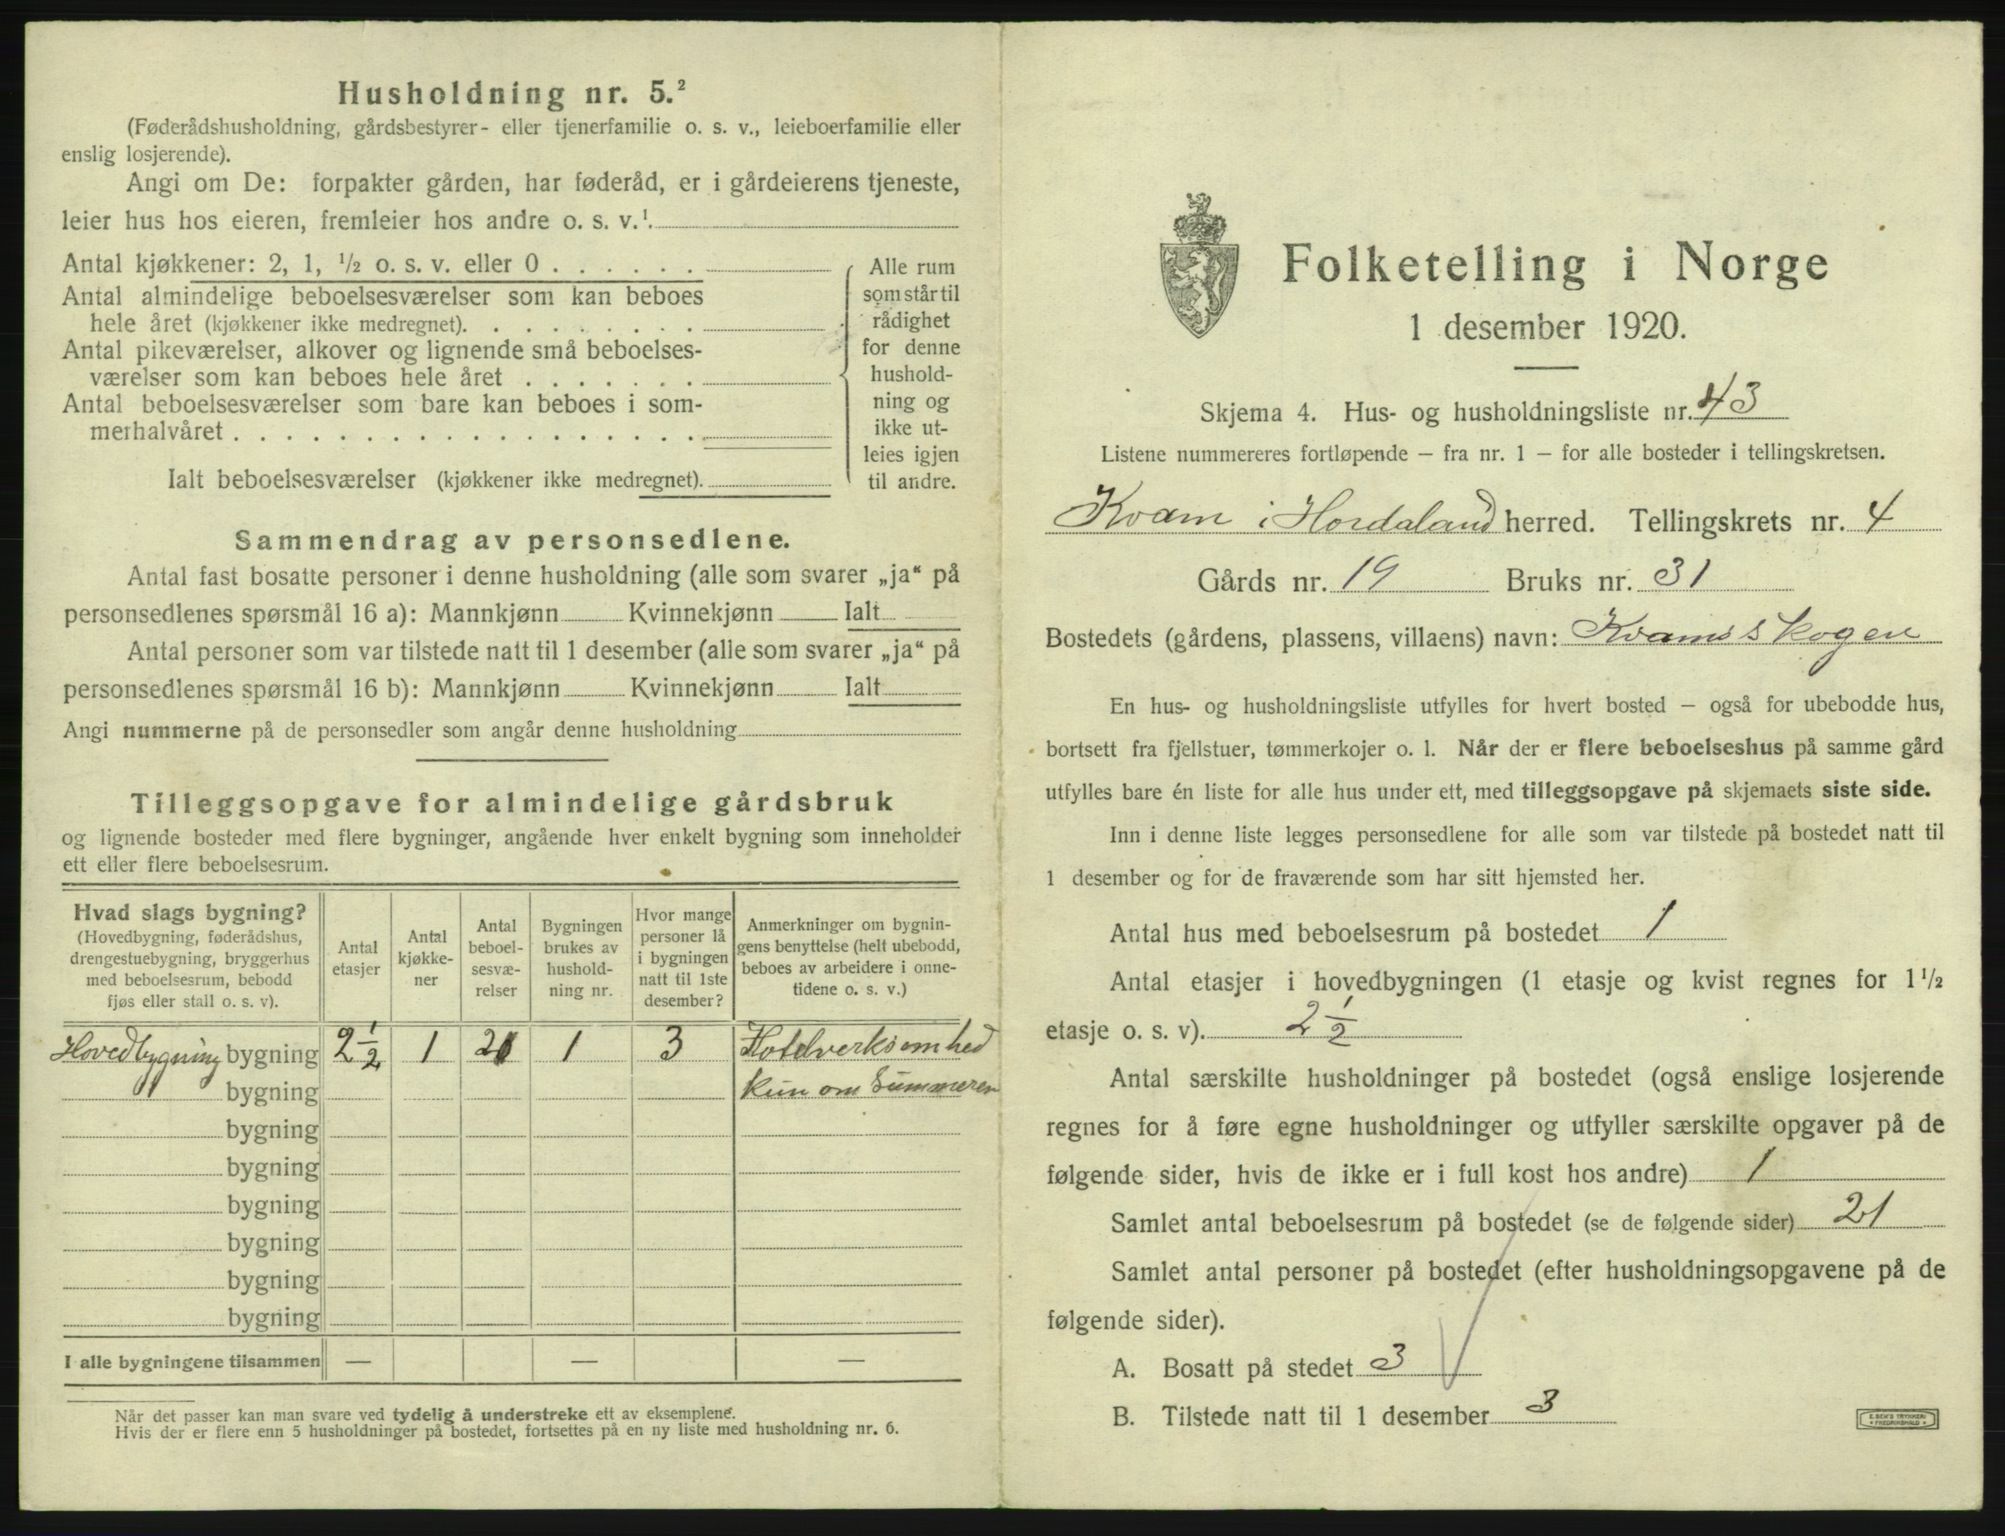 Husholdning nr. 5.²
(Føderådshusholdning, gårdsbestyrer- eller tjenerfamilie o. s. v., leieboerfamilie eller
enslig losjerende).
Angi om De: forpakter gården, har føderåd, er i gårdeierens tjeneste,
leier hus hos eieren, fremleier hos andre o. s. v.¹
Antal kjøkkener: 2, 1, ½ o. s. v. eller 0 . . . . . .
Antal almindelige beboelsesværelser som kan beboes
hele året (kjøkkener ikke medregnet). . . . . . . . .
Antal pikeværelser, alkover og lignende små beboelses-
værelser som kan beboes hele året . . . . . . .
Antal beboelsesværelser som bare kan beboes i som-
merhalvåret . . . . . . . . . . . . . . . . . .
Ialt beboelsesværelser (kjøkkener ikke medregnet).
Alle rum
som står til
rådighet
for denne
hushold-
ning og
ikke ut-
leies igjen
til andre.
Sammendrag av personsedlene.
Antal fast bosatte personer i denne husholdning (alle som svarer „ja“ på
personsedlenes spørsmål 16 a): Mannkjønn Kvinnekjønn Ialt
Antal personer som var tilstede natt til 1 desember (alle som svarer „ja“ på
personsedlenes spørsmål 16 b): Mannkjønn Kvinnekjønn Ialt
Angi nummerne på de personsedler som angår denne husholdning
Tilleggsopgave for almindelige gårdsbruk
og lignende bosteder med flere bygninger, angående hver enkelt bygning som inneholder
ett eller flere beboelsesrum.
Hvad slags bygning?
(Hovedbygning, føderådshus,
drengestuebygning, bryggerhus
med beboelsesrum, bebodd
fjøs eller stall o. s. v).
Antal
etasjer
Antal
kjøkke-
ner
Antal
beboel-
sesvæ-
relser
Bygningen
brukes av
hushold-
ning nr.
Hvor mange
personer lå
i bygningen
natt til 1ste
desember?
Anmerkninger om bygnin-
gens benyttelse (helt ubebodd,
beboes av arbeidere i onne-
tidene o. s. v.)
Hovedbygning bygning 2½ 1 21 1 3 Hotelverksomhed
bygning kun om Summeren
bygning
bygning
bygning
bygning
bygning
bygning
I alle bygningene tilsammen — — —
Når det passer kan man svare ved tydelig å understreke ett av eksemplene.
Hvis der er flere enn 5 husholdninger på bostedet, fortsettes på en ny liste med husholdning nr. 6.
Folketelling i Norge
1 desember 1920.
Skjema 4. Hus- og husholdningsliste nr. 43
Listene nummereres fortløpende – fra nr. 1 – for alle bosteder i tellingskretsen.
Kvam i Hordaland herred. Tellingskrets nr. 4
Gårds nr. 19 Bruks nr. 31
Bostedets (gårdens, plassens, villaens) navn: Kvamsskogen
En hus- og husholdningsliste utfylles for hvert bosted – også for ubebodde hus,
bortsett fra fjellstuer, tømmerkojer o. l. Når der er flere beboelseshus på samme gård
utfylles bare én liste for alle hus under ett, med tilleggsopgave på skjemaets siste side.
Inn i denne liste legges personsedlene for alle som var tilstede på bostedet natt til
1 desember og for de fraværende som har sitt hjemsted her.
Antal hus med beboelsesrum på bostedet 1
Antal etasjer i hovedbygningen (1 etasje og kvist regnes for 1½
etasje o. s. v). 2½
Antal særskilte husholdninger på bostedet (også enslige losjerende
regnes for å føre egne husholdninger og utfyller særskilte opgaver på de
følgende sider, hvis de ikke er i full kost hos andre) 1
Samlet antal beboelsesrum på bostedet (se de følgende sider) 21
Samlet antal personer på bostedet (efter husholdningsopgavene på de
følgende sider).
A. Bosatt på stedet 3
B. Tilstede natt til 1 desember 3